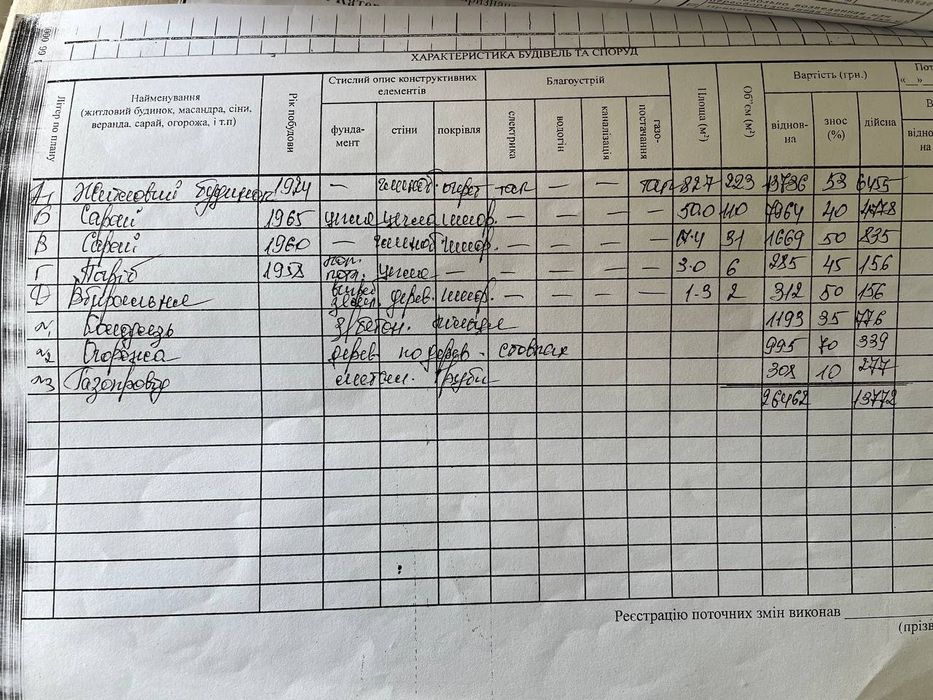 000 90
ХАРАКТЕРИСТИКА БУДІВЕЛЬ ТА СПОРУД
Літер по плану
Найменування
(житловий будинок, масандра, сіни,
веранда, сарай, огорожа, і т.п)
Рік побудови
Стислий опис конструктивних
елементів
фунда-
мент
стіни
покрівля
Благоустрій
електрика
водогін
каналізація
газо-
постачання
Площа (м²)
Об"єм (м³)
Вартість (грн.)
віднов-
на
знос
(%)
дійсна
Житловий будинок 1924 — 82.7 223 13736 53 6455
Б Сарай 1965 цегла цегла шифер. — — — — 50.0 110 7964 40 4778
В Сарай 1960 — шифер. — — — — 31 1669 50 835
Г Погріб 1958 цегла — — — — — 3.0 6 285 45 156
Вбиральня дерев. шифер. — — — — 1.3 2 312 50 156
№1 Колодязь з/бетон. кільця 1193 35 776
№2 Огорожа дерев. по дерев. стовпах 995 70 339
№3 Газопровід метал. труби 308 10 277
26462 13772
Реєстрацію поточних змін виконав
(прізв